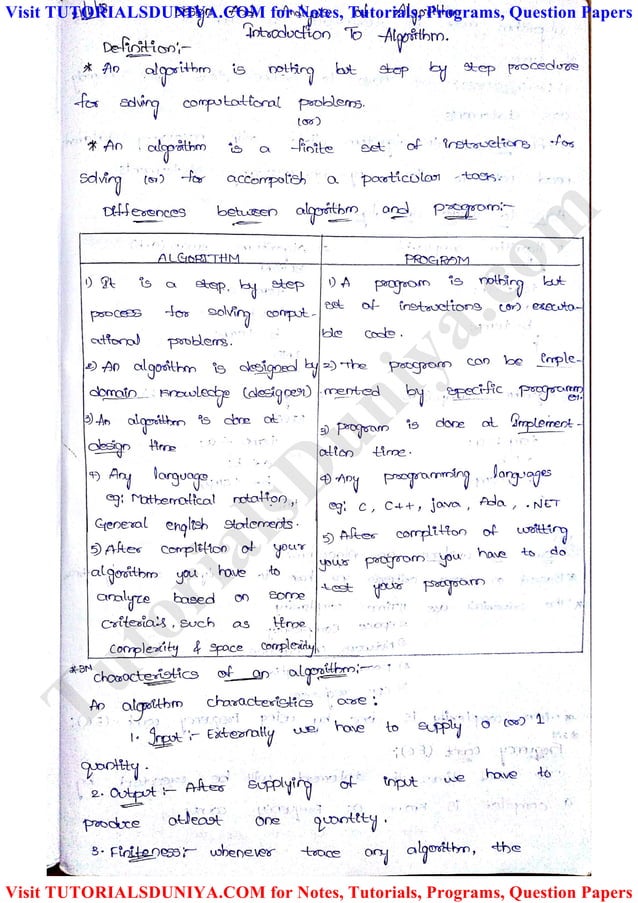 Visit TUTORIALSDUNIYA.COM for Notes, Tutorials, Programs, Question Papers
Introduction To Algorithm.
Definition:-
* An algorithm is nothing but step by step procedure
for solving computational problems.
(or)
* An algorithm is a finite set of instructions for
solving (or) for accompolish a particular task.
Differences between algorithm and program:-
ALGORITHM
1) It is a step by step
process for solving comput-
ational problems.
2) An algorithm is designed by
domain knowledge (designer)
3) An algorithm is done at
design time
4) Any language
eg: Mathematical notation,
General english statements.
5) After complition of your
algorithm you have to
analyze based on some
criteriais, such as time
complexity & space complexity
PROGRAM
1) A program is nothing but
set of instructions (or) executa-
ble code.
2) The program can be imple-
mented by specific programm
er.
3) program is done at Implement-
ation time.
4) Any programming languages
eg: C, C++, java, Ada, .NET
5) After complition of writting
your program you have to do
test your program
*3M
characteristics of an algorithm:-
An algorithm characteristics are:
1. Input:- Externally we have to supply 0 (or) 1
quantity.
2. Output:- After supplying of input we have to
produce atleast one quantity.
3. Finiteness:- whenever trace any algorithm, the
TutorialsDuniya.com
Visit TUTORIALSDUNIYA.COM for Notes, Tutorials, Programs, Question Papers